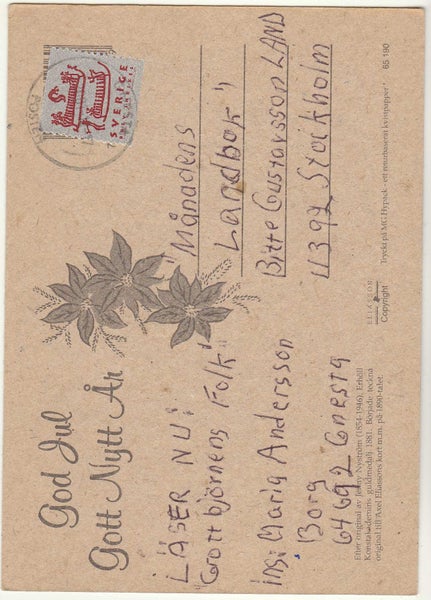 God Jul
Gott Nytt År
LÄSER NU:
"Grottbjörnens Folk"
ins: Maria Andersson
Borg
64692 Gnesta
Efter original av Jenny Nyström (1854-1946). Erhöll
Konstakademins guldmedalj 1881. Började teckna
original till Axel Eliassons kort m.m. på 1890-talet.
SVERIGE
"Månadens
Landbok"
Bitte Gustavsson LAND
11392 Stockholm
ELIASSON
Copyright
Tryckt på MG Hypack - ett miljöbaserat kvistpapper!
65 190